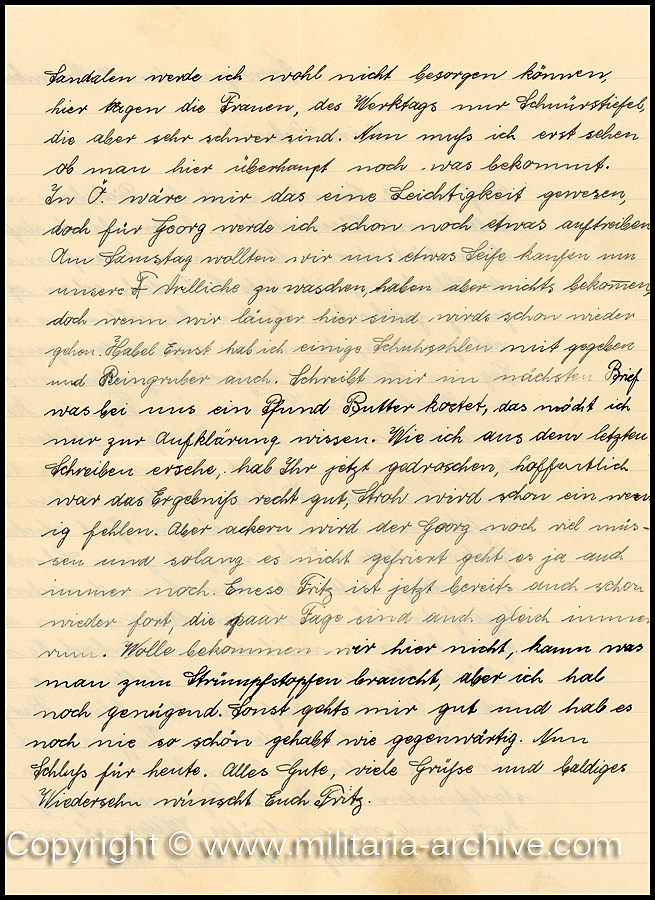 Sandalen werde ich wohl nicht besorgen können,
hier tragen die Frauen, des Werktags nur Schnürstiefel,
die aber sehr schwer sind. Nun muß ich erst sehen
ob man hier überhaupt noch was bekommt.
In Ö. wäre mir das eine Leichtigkeit gewesen,
doch für Georg werde ich schon noch etwas auftreiben
Am Samstag wollten wir uns etwas Seife kaufen um
unsere Drilliche zu waschen, haben aber nichts bekommen,
doch wenn wir länger hier sind wirds schon wieder
gehen. Habel Ernst hab ich einige Schuhsohlen mit gegeben
und Reingruber auch. Schreibt mir im nächsten Brief
was bei uns ein Pfund Butter kostet, das möcht ich
nur zur Aufklärung wissen. Wie ich aus dem letzten
Schreiben ersehe, hab Ihr jetzt gedroschen, hoffentlich
war das Ergebniß recht gut, Stroh wird schon ein wen
ig fehlen. Aber ackern wird der Georg noch viel müs-
sen und solang es nicht gefriert geht es ja auch
immer noch. Fritz ist jetzt bereits auch schon
wieder fort, die paar Tage sind auch gleich immer
rum. Wolle bekommen wir hier nicht, kaum was
man zum Strümpfstopfen braucht, aber ich hab
noch genügend. Sonst gehts mir gut und hab es
noch nie so schön gehabt wie gegenwärtig. Nun
Schluß für heute. Alles Gute, viele Grüße und baldiges
Wiedersehn wünscht Euch Fritz.
Copyright © www.militaria-archive.com